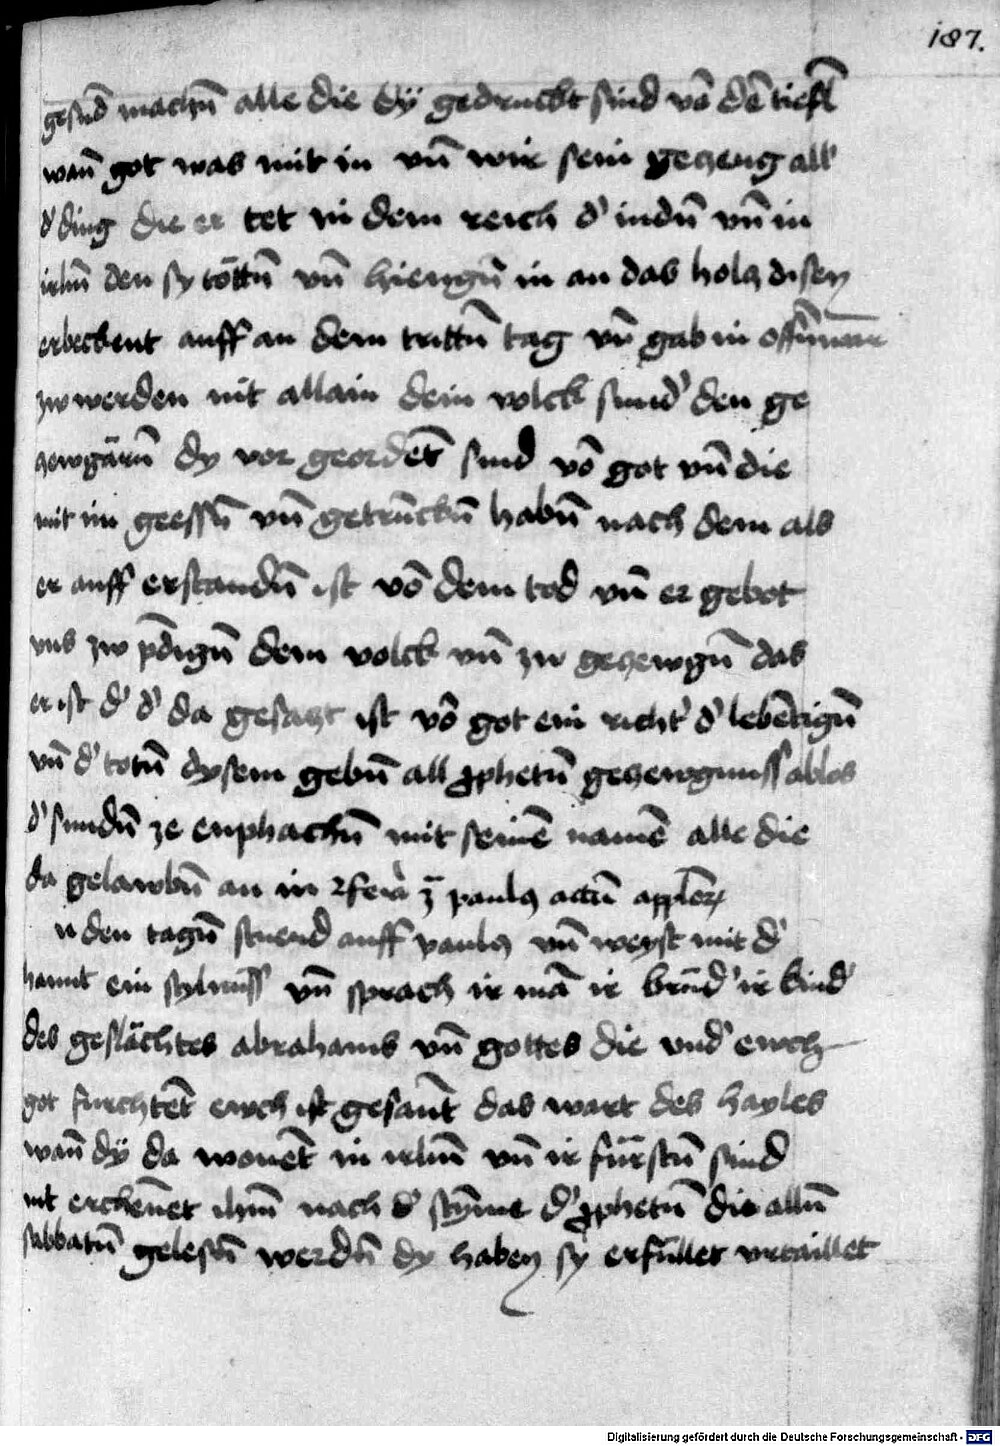 187.
gesūd machn̄ alle die dÿ gedruckt sind vō dē tiefl
wan̄ got was mit in vn̄ wir sein geczeug all'
d' ding die er tet in dem reich d' iudn̄ vn̄ in
irlm̄ den sy töttn̄ vn̄ hiengn̄ in an das holcz disen
erbeckent auff an dem trittn̄ tag vn̄ gab in offn̄war
zw werden nit allain dem volck sund' den ge
zewgärn̄ dy vor geordēt sind vō got vn̄ die
mit im geessn̄ vn̄ getrūckn̄ habn̄ nach dem als
er auff erstandn̄ ist vō dem tod vn̄ er gebot
vns zw p̄dign̄ dem volck vn̄ zw geczewgn̄ das
er ist d' d' da gesatzt ist vō got ein richt' d' lebētign̄
vn̄ d' totn̄ dysem gebn̄ all ꝓphetn̄ geczewgnuss ablos
d' sundn̄ ze enphachn̄ mit seinē namē alle die
da gelawbn̄ an in 2 feria z̄ paulꝰ actū apl̄oꝝ
n den tagn̄ stuend auff paulꝰ vn̄ weyst mit d'
hannt ein sylnuss vn̄ sprach ir mā ir brūd' ir kind'
des geslächtes abrahams vn̄ gottes die vnd' ewch
got furchtēt ewch ist gesant̄ das wart des hayles
wan̄ dÿ da wonēt in irlm̄ vn̄ ir fürstn̄ sind
nit erchēnet ihm̄ nach d' stȳme d' ꝓphetn̄ die alln̄
sabbatn̄ gelesn̄ werdn̄ dy haben sy erfüllet vrtaillet
Digitalisierung gefördert durch die Deutsche Forschungsgemeinschaft - DFG